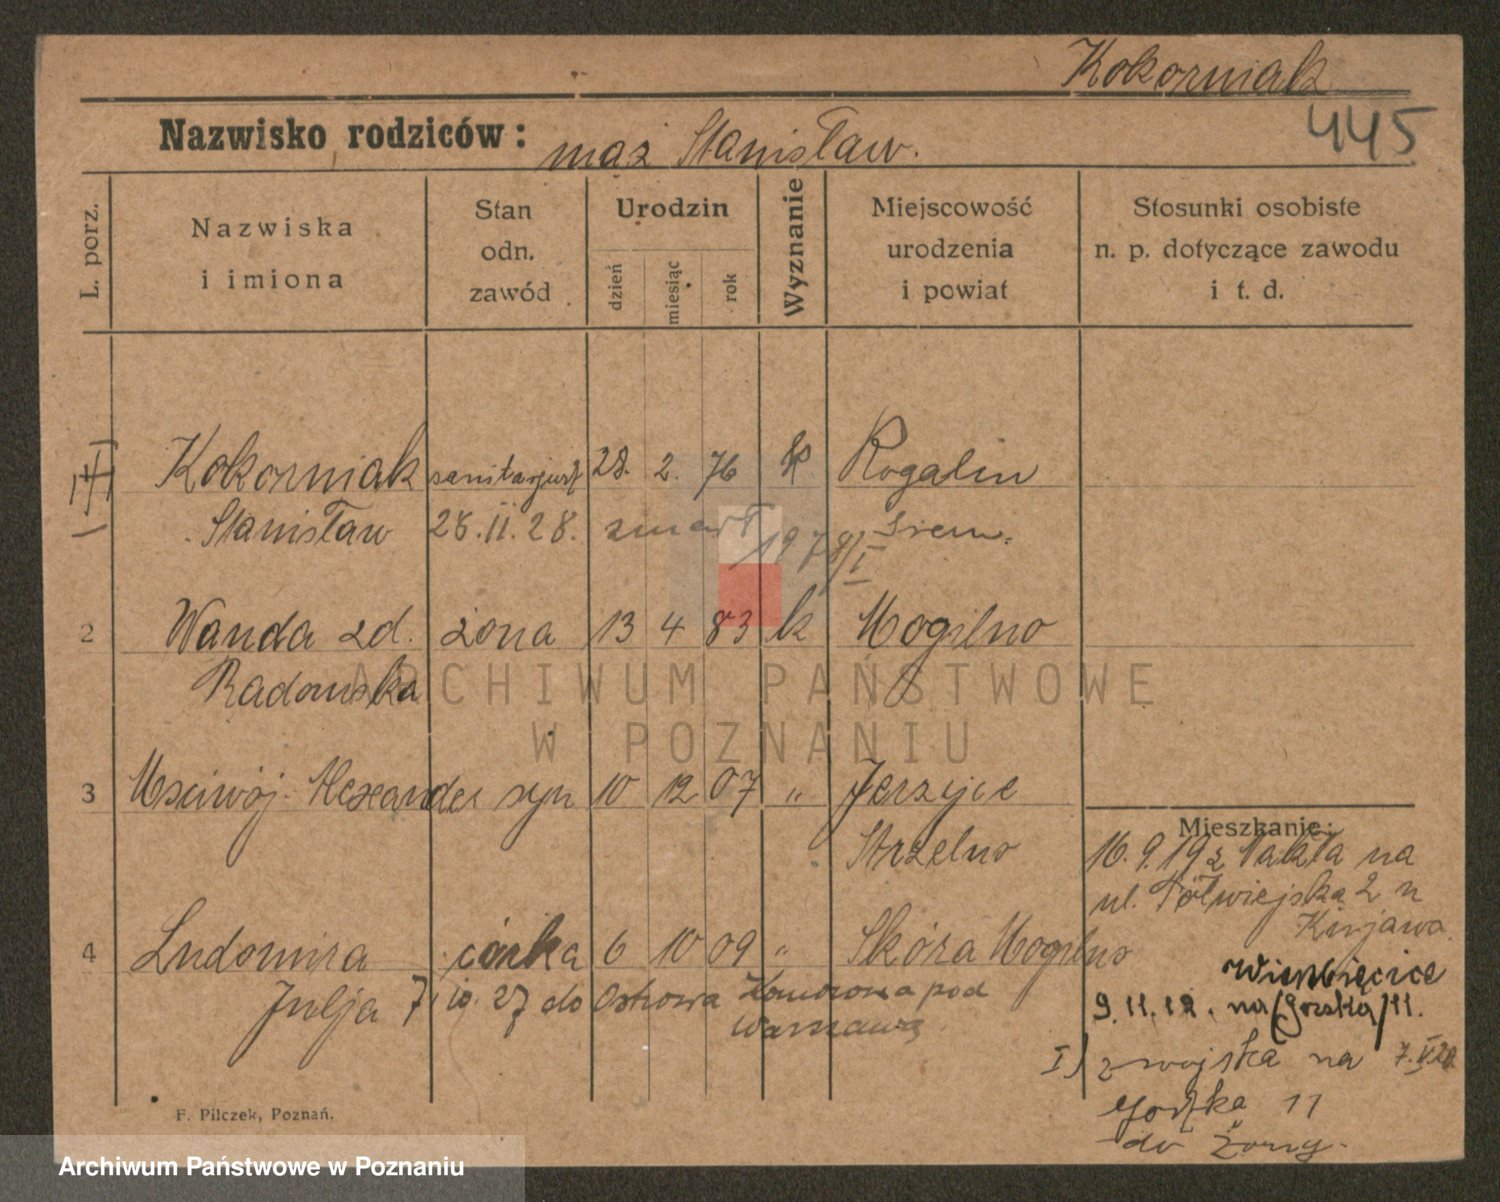 Kokorniak
445
Nazwisko rodziców: mąż Stanisław.
L. porz.
Nazwiska i imiona
Stan odn. zawód
Urodzin
dzień miesiąc rok
Wyznanie
Miejscowość urodzenia i powiat
Stosunki osobiste n. p. dotyczące zawodu i t. d.
Kokorniak sanitarjusz 28. 2. 76 k Rogalin
Stanisław 28. II. 28. zmarł Śrem.
2 Wanda zd. żona 13 4 83 k Mogilno
Radomska
3 Mściwój Alexander syn 10 12 07 " Jerzyce
Strzelno
4 Ludomira córka 6 10 09 " Skóra Mogilno
Julja 7. 10. 27 do Ostrowa Komorowa pod
Warszawą
Mieszkanie:
16. 9. 19 na
ul. Półwiejską 2 u
Kujawa
Wierzbięcice
9. 11. 12. na (Gorska) 11.
I) z wojska na 7. V. 20
11
do Żony.
F. Pilczek, Poznań.
ARCHIWUM PAŃSTWOWE
W POZNANIU
Archiwum Państwowe w Poznaniu